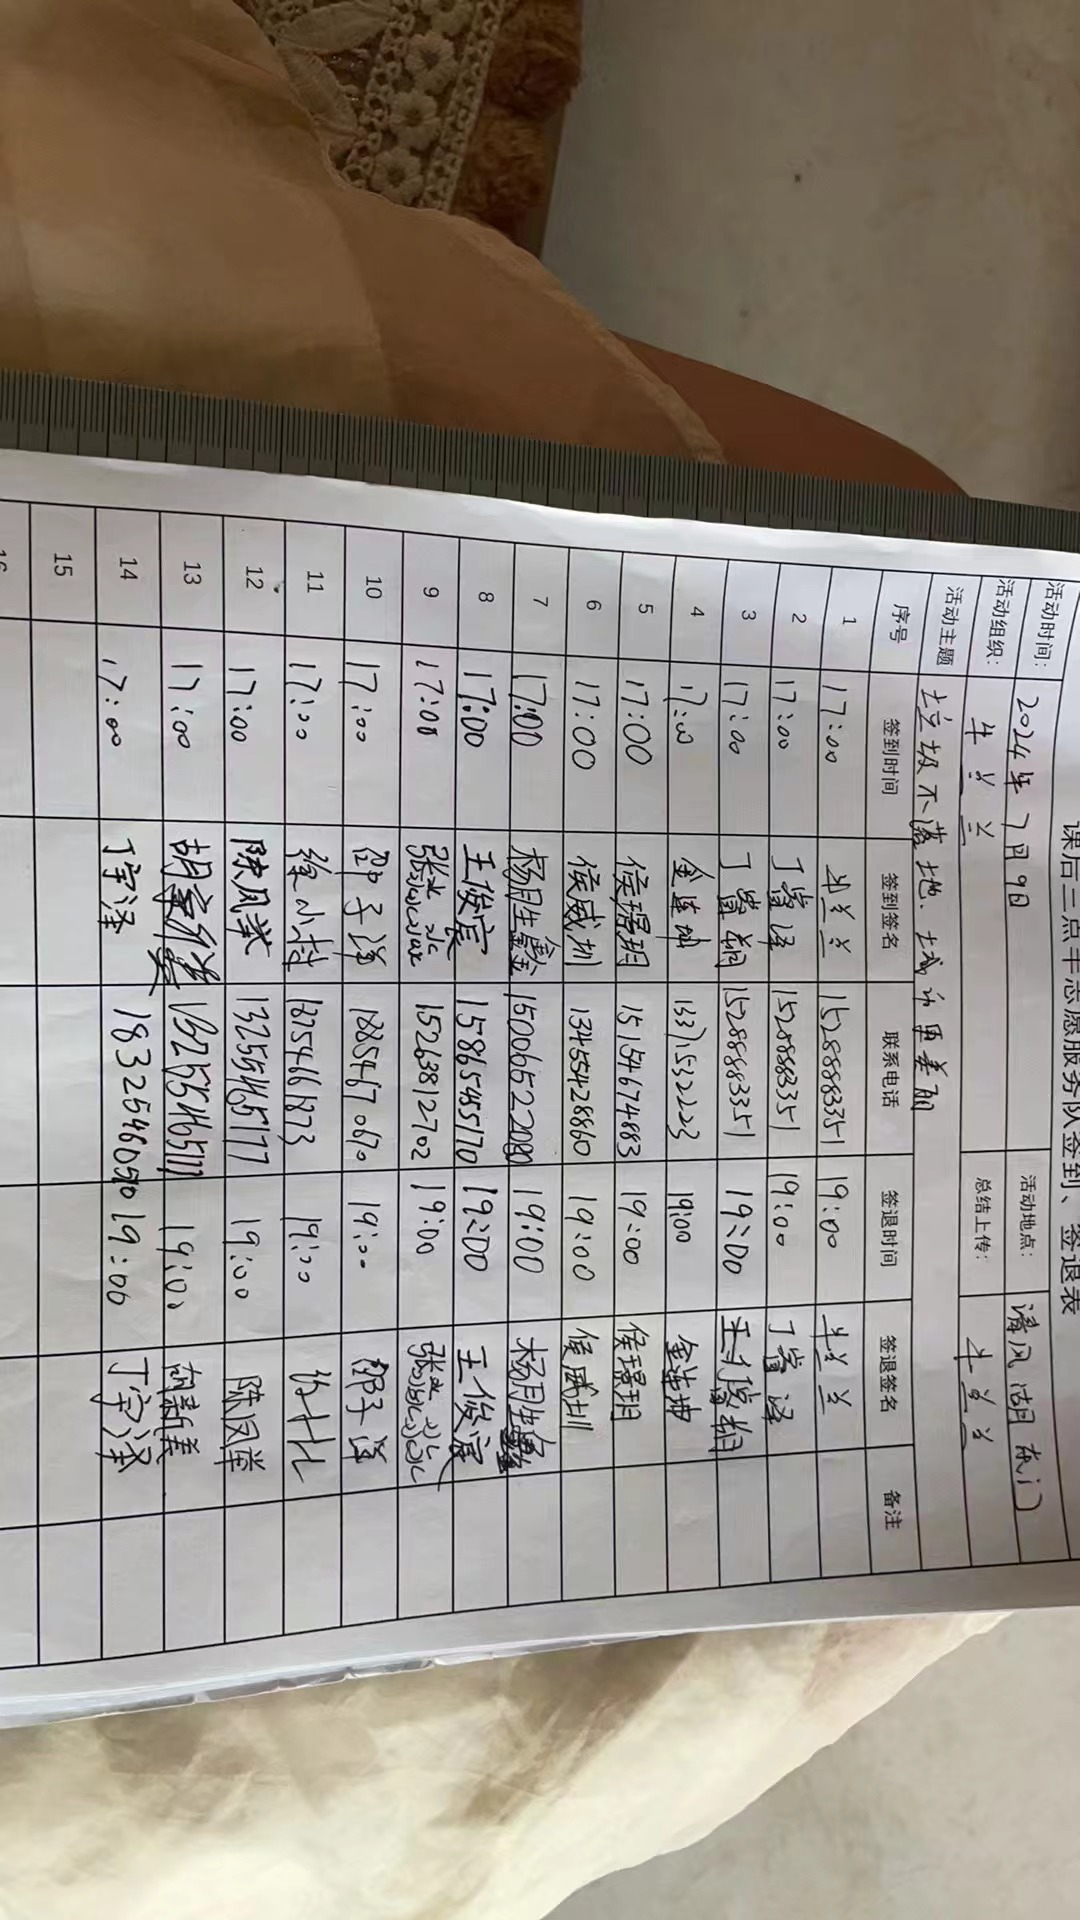 课后三点半志愿服务队签到、签退表
活动时间: 2024年7月9日 活动地点: 清风湖东门
活动组织: 牟兰兰 总结上传: 牟兰兰
活动主题 垃圾不落地、城市更美丽
序号 签到时间 签到签名 联系电话 签退时间 签退签名 备注
1 17:00 牟兰兰 15288883351 19:00 牟兰兰
2 17:00 丁睿泽 15288883351 19:00 丁睿泽
3 17:00 丁睿翔 15288883351 19:00
4 17:00 13371532223 19:00
5 17:00 侯璟玥 15154674883 19:00 侯璟玥
6 17:00 侯威圳 13455428860 19:00 侯威圳
7 17:00 杨玥生鑫 15006522080 19:00
8 17:00 王俊宸 15865455170 19:00 王俊宸
9 17:00 15263812702 19:00
10 17:00 邵子洋 18854670670 19:00 邵子洋
11 17:00 徐小村 18754661873 19:00
12 17:00 陈凤举 13255465177 19:00 陈凤举
13 17:00 13255465177 19:00
14 17:00 丁宇泽 18325460590 19:00 丁宇泽
15
16